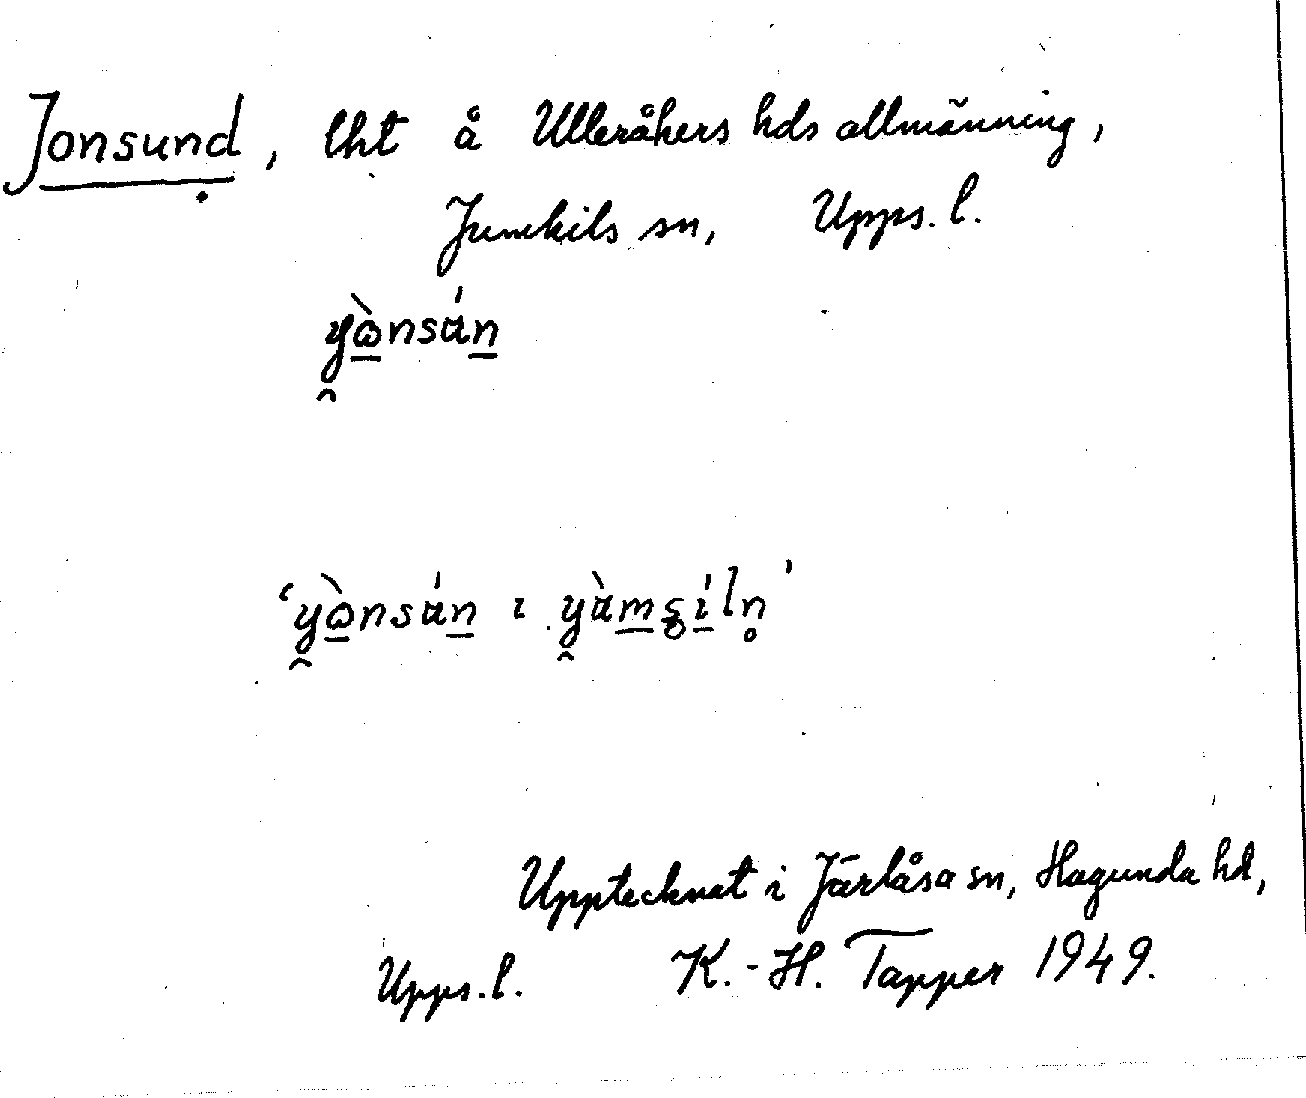 Jonsund, lht å Ulleråkers hds allmänning,
Jumkils sn, Upps. l.
y̯ὼ̱nsάṉ
'y̯ὼ̱nsάṉ ı y̯ὰm̱ʂı̱́ln̥'
Upptecknat i Järlåsa sn, Hagunda hd,
Upps. l. K.-H. Tapper 1949.